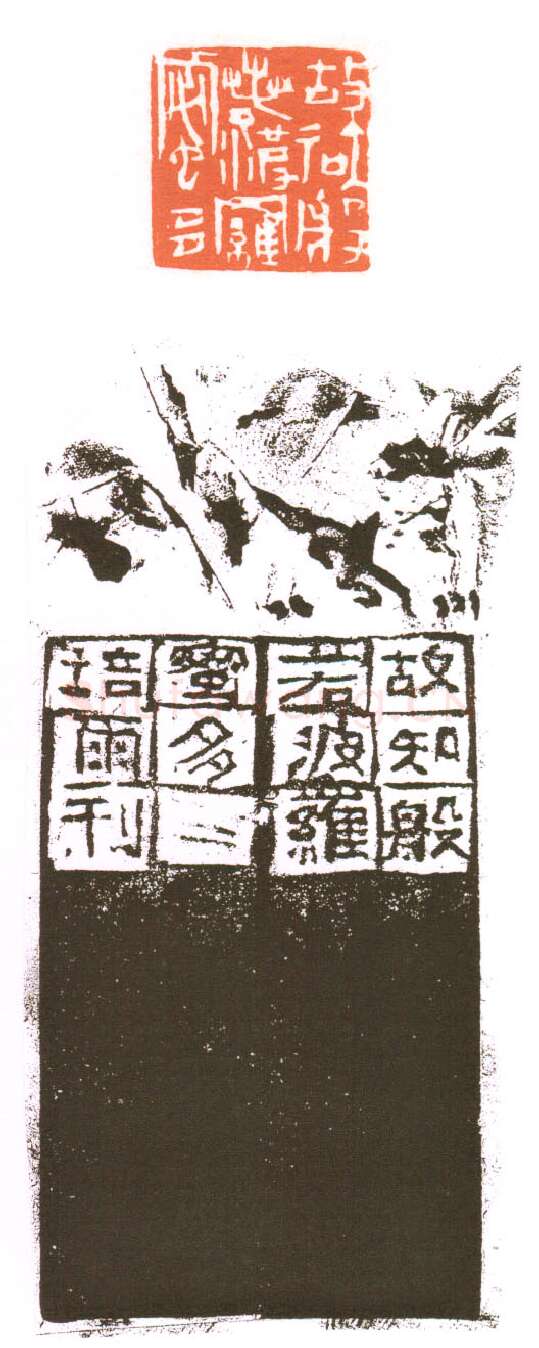 故知般
若波羅
蜜多
故知般
若波羅
蜜多二
培爾刊